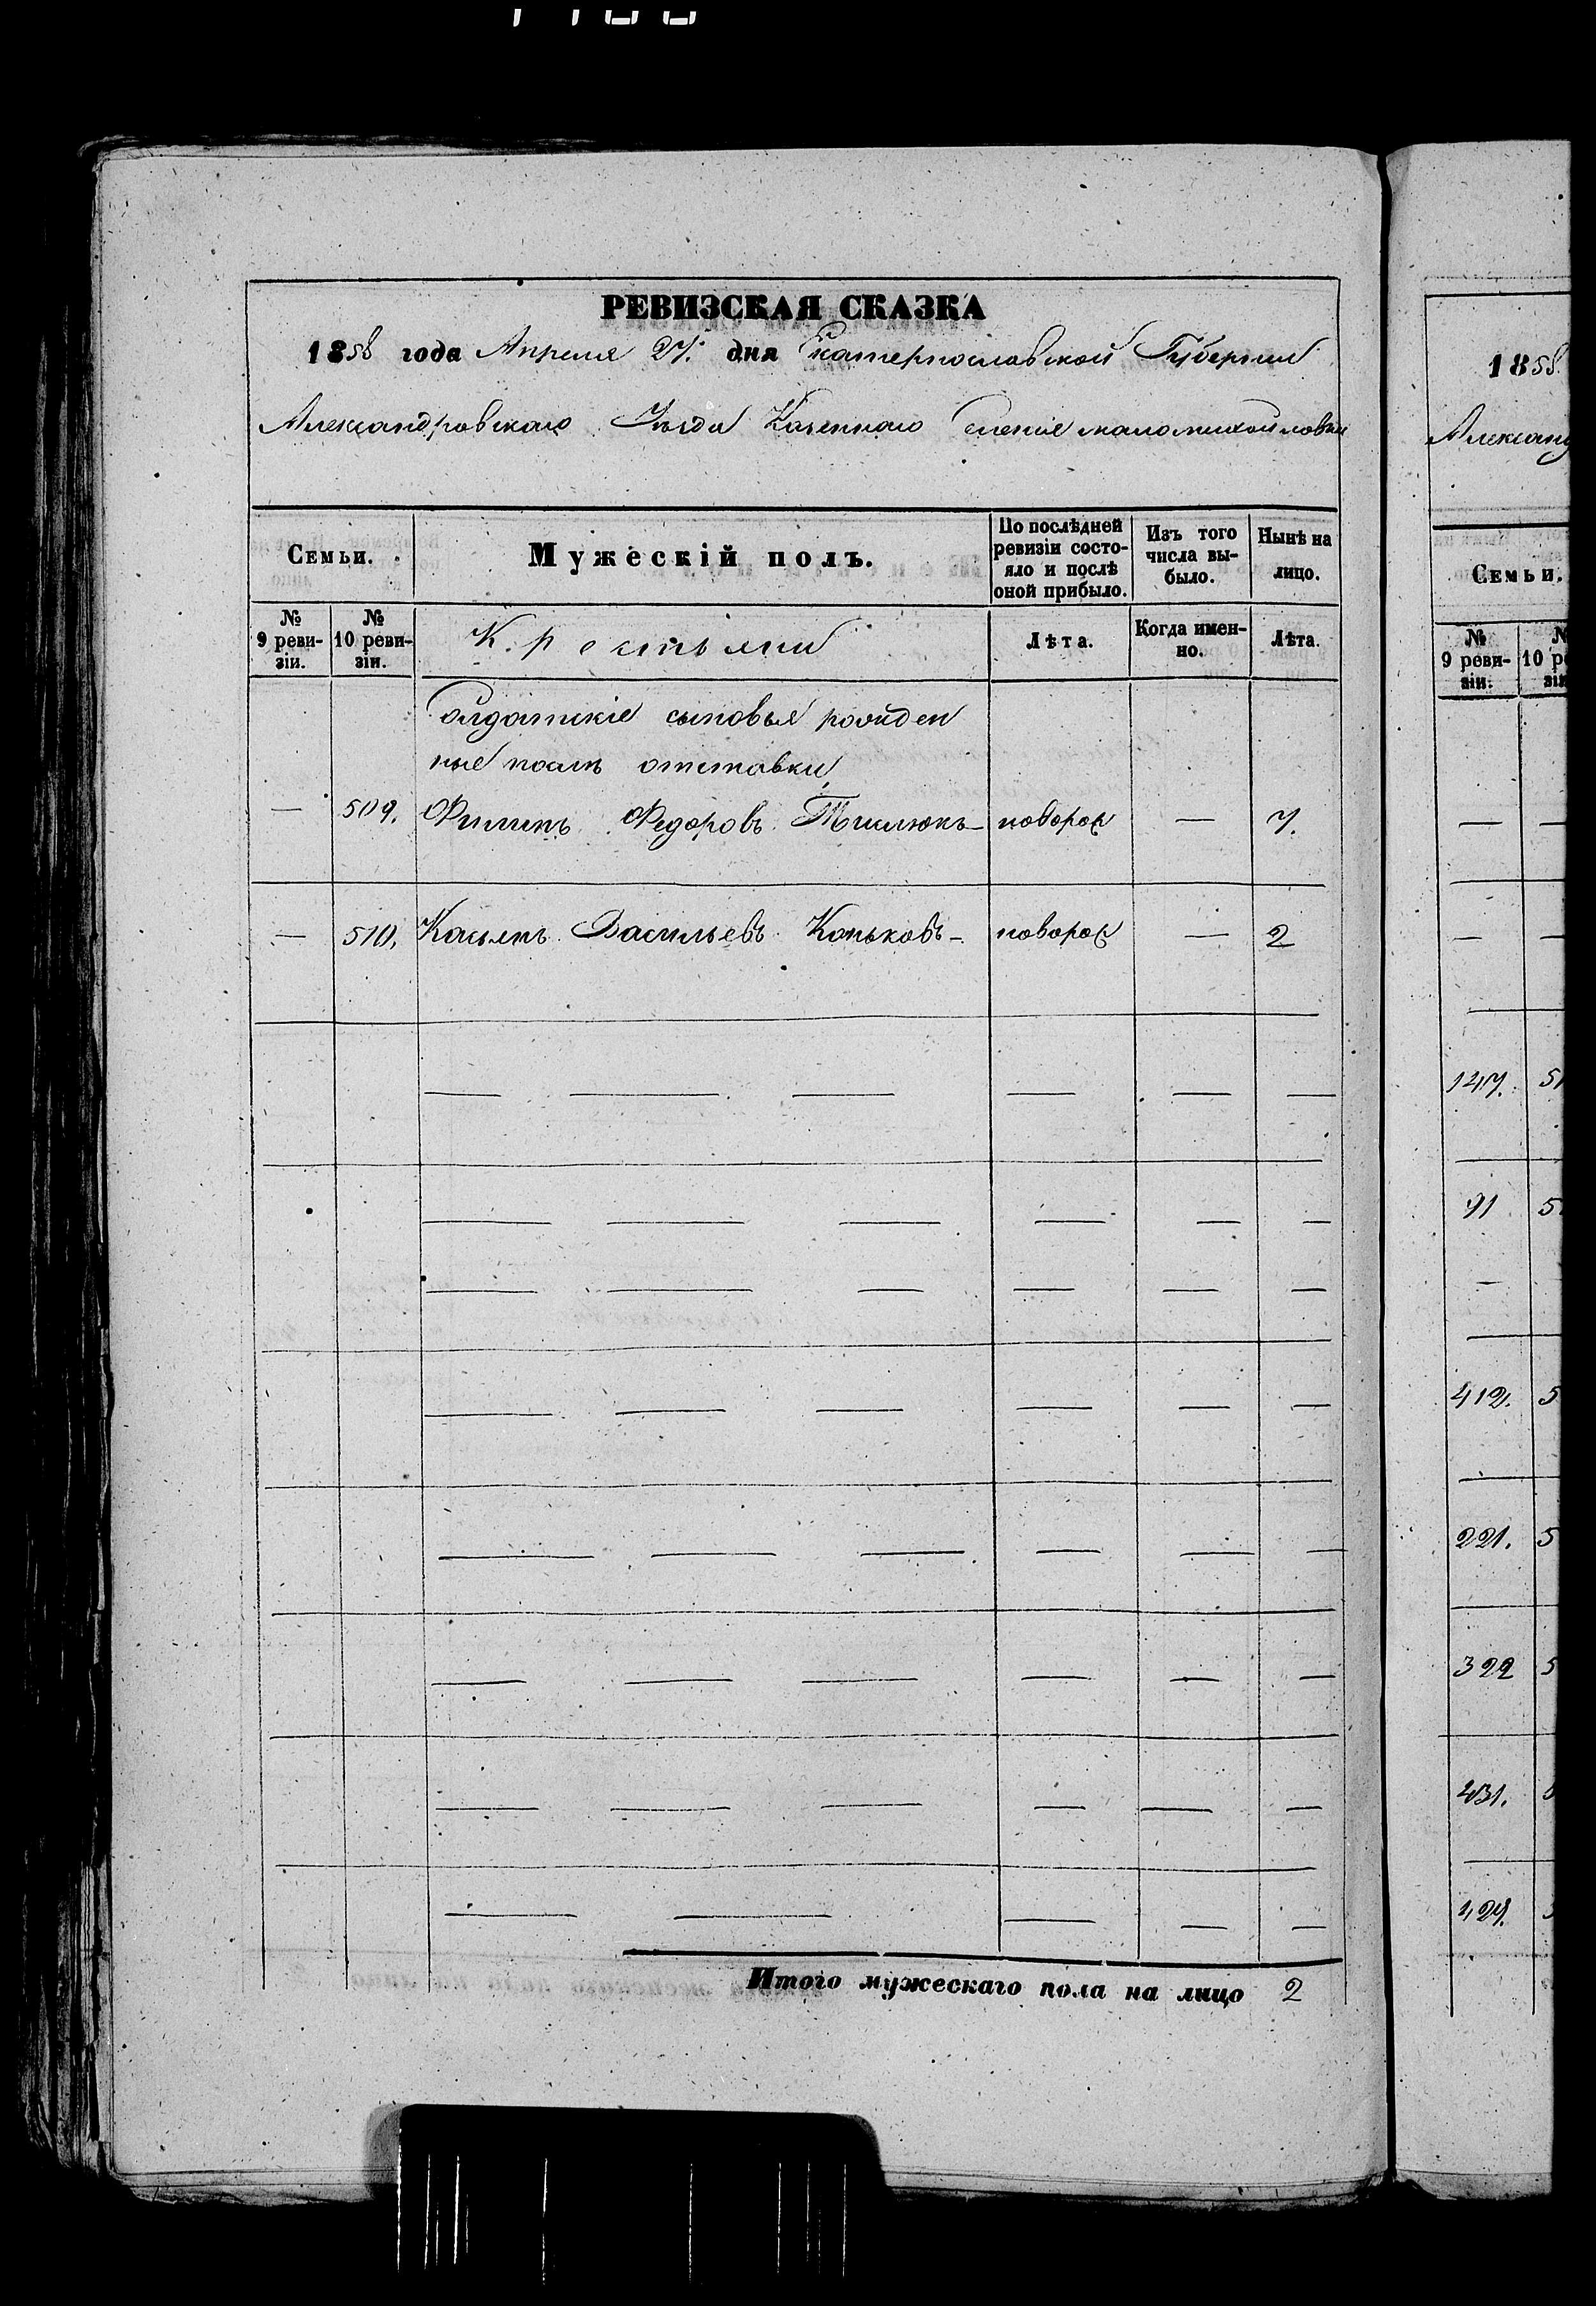 РЕВИЗСКАЯ СКАЗКА
1858 года Апреля 27. дня Екатеринославской Губернии
Александровскаго Уѣзда Казеннаго селенія маломихайловки
Семьи.
Мужескій полъ.
По послѣдней ревизіи состо-
яло и послѣ оной прибыло.
Изъ того числа вы-
было.
Нынѣ на лицо.
№ 9 реви-
зіи.
№ 10 реви-
зіи.
Крестьяни
Лѣта.
Когда имен-
но.
Лѣта.
Солдатскіе сыновья рожден
ные послѣ отставки
— 509. Филипъ Федоровъ — новорож — 7.
— 510. Касьянъ Васильевъ Коньковъ — новорож — 2
Итого мужескаго пола на лицо 2
1858
Александ
Семьи.
№ 9 реви-
зіи.
№
10 ре
зіи
147. 51
91 5
412. 5
221. 5
322 5
431.
127.